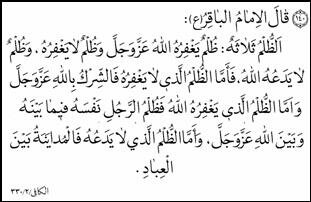 (١٤٠) قَالَ الإِمَامُ البَاقِرُ(ع):
الظُّلْمُ ثَلَاثَةٌ: ظُلْمٌ يَغْفِرُهُ اللهُ عَزَّوَجَلَّ وَظُلْمٌ لَا يَغْفِرُهُ، وَظُلْمٌ
لَا يَدَعُهُ اللهُ، فَأَمَّا الظُّلْمُ الَّذِي لَا يَغْفِرُهُ فَالشِّرْكُ بِاللهِ عَزَّوَجَلَّ
وَأَمَّا الظُّلْمُ الَّذِي يَغْفِرُهُ اللهُ فَظُلْمُ الرَّجُلِ نَفْسَهُ فِيمَا بَيْنَهُ
وَبَيْنَ اللهِ عَزَّوَجَلَّ، وَأَمَّا الظُّلْمُ الَّذِي لَا يَدَعُهُ فَالْمُدَايَنَةُ بَيْنَ
الْعِبَادِ.
الكافي/٢/ ٣٣٠